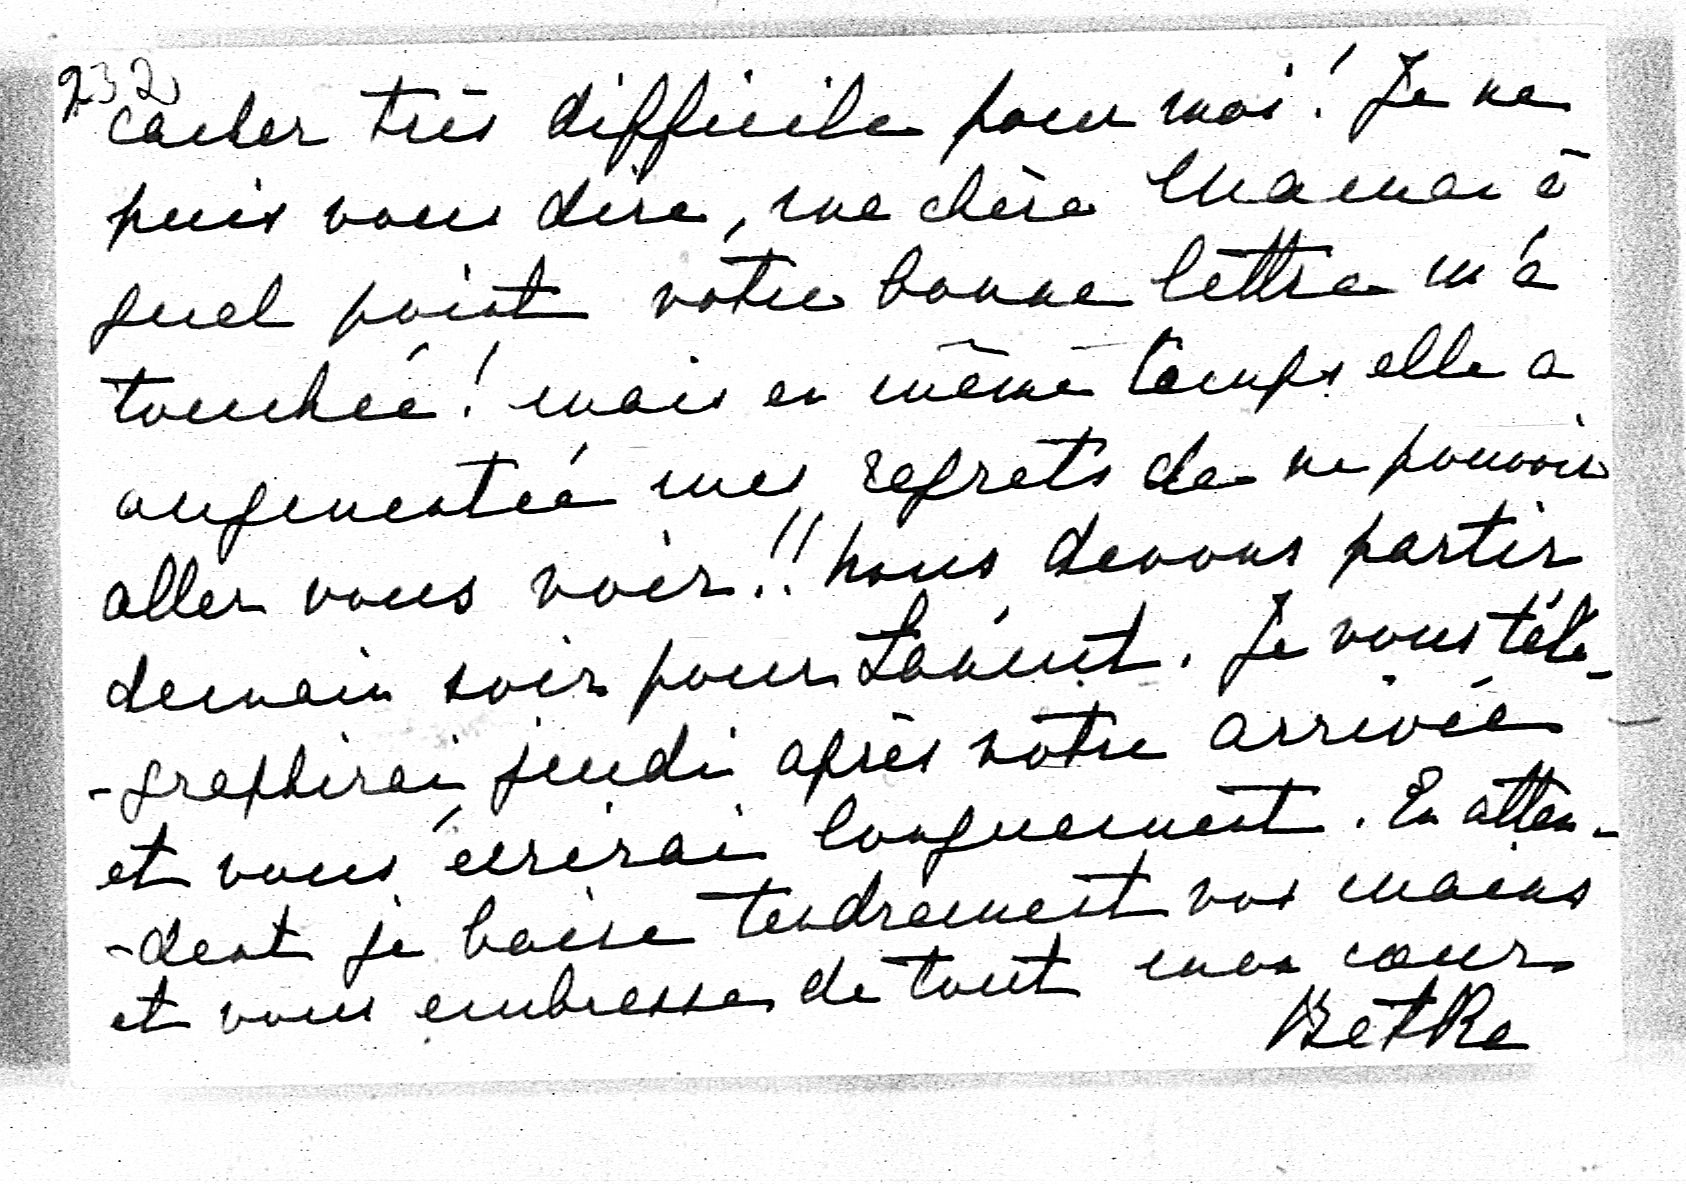 232
cacher très difficile pour moi! Je ne
puis vous dire, ma chère Maman à
quel point vôtre bonne lettre m'a
touchée! mais en même temps elle a
augmentée mes regrets de ne pouvoir
aller vous voir!! Nous devons partir
demain soir pour. Je vous télé-
-graphirai jeudi après nôtre arrivée
et vous écrirai longuement. En atten-
-dant je baise tendrement vos mains
et vous embrasse de tout mon cœur